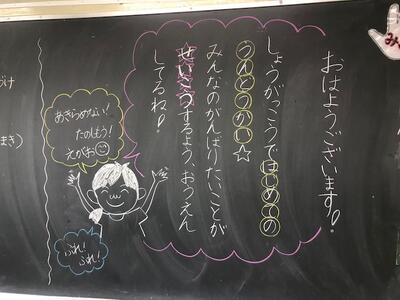 おはようございます!
しょうがっこうではじめての
うんどうかい☆
みんなのがんばりたいことが
せいこうするよう、おうえん
してるね!
あきらめない!
たのしもう!
えがお
ふれ!
ふれ!
づけ
まき)